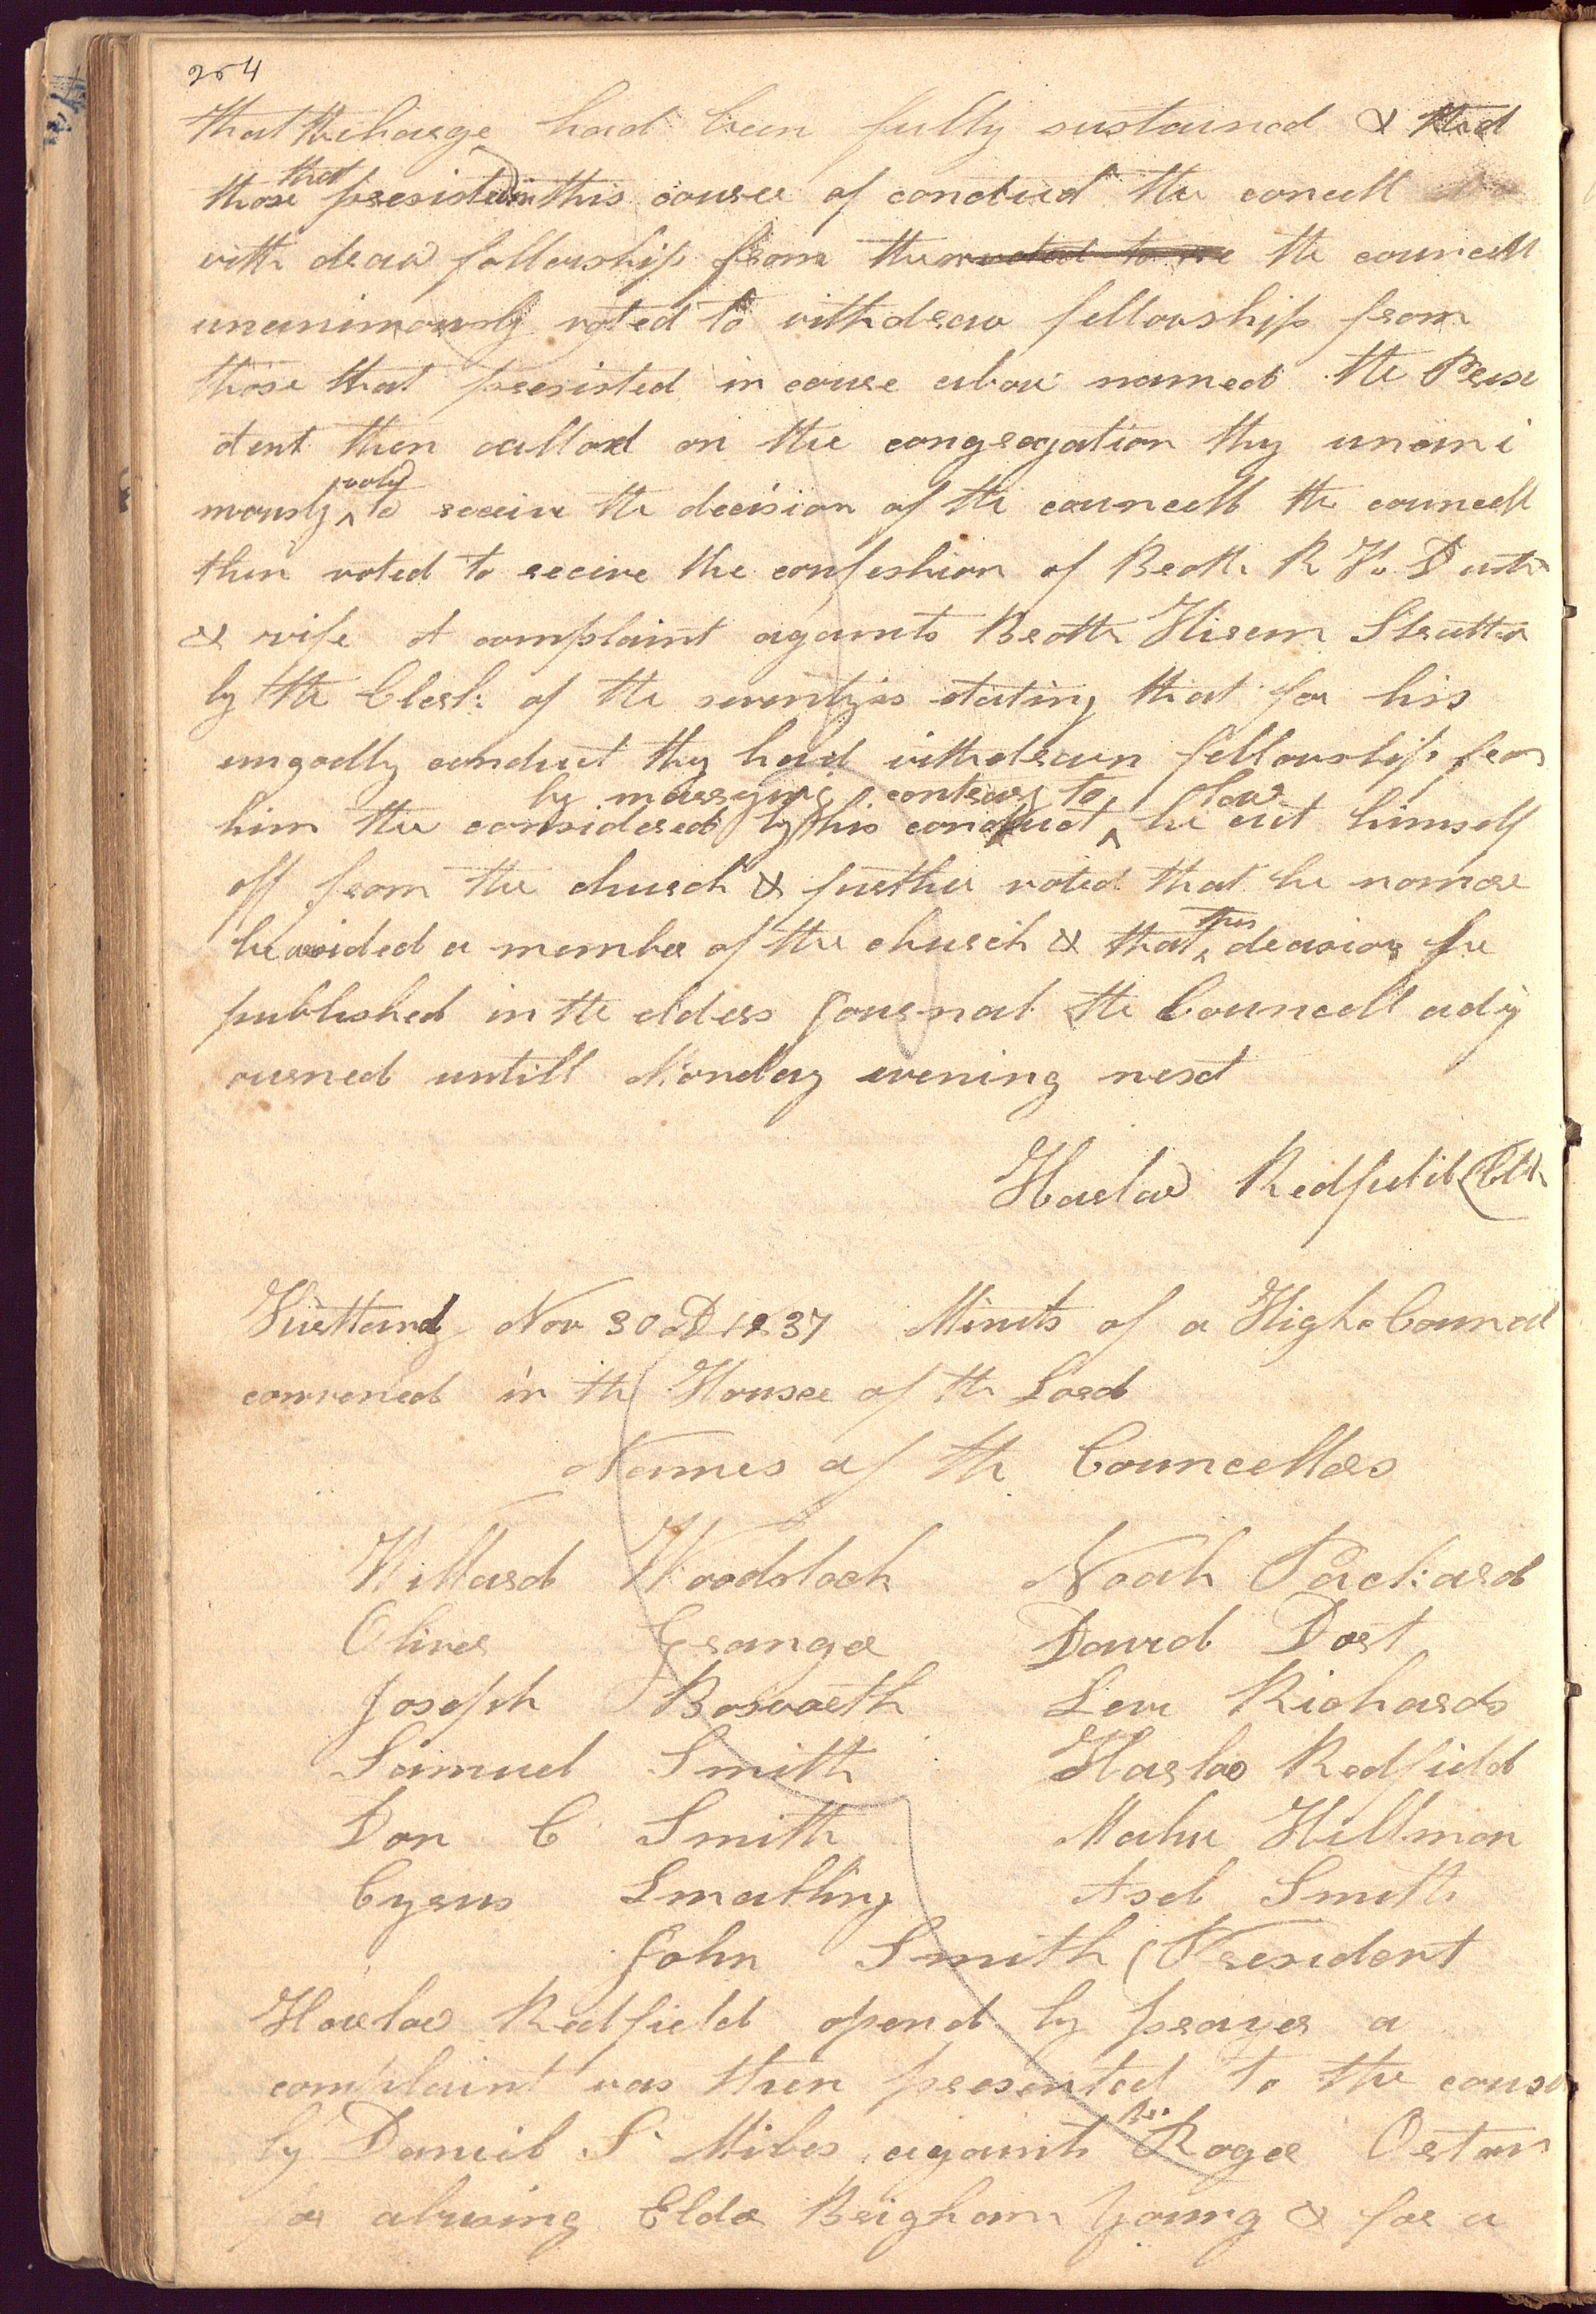 254
that the charge had been fully sustained & that
those that presisted in this course of conduct the concell
with draw fellowship from them voted to we the councell
unanimously voted to withdraw fellowship from
those that presisted in course above named the Presi
dent then called on the congregation thy unani
mously voted to receive the decision of the councell the councell
then voted to receive the confeshion of Broth R. H.
& wife A complaint againts Broth Hirem Stratten
by the Clerk of the seventyes stating that for his
ungodly conduct thy had withdrawn fellowship from
him the considered by his conduct by marrying contrary to law he cut himself
off from the church & further voted that he nomore
be a member of the church & that this decision be
published in the elders Journal the Councell adj
ourned untill Monday evening next
Harlow Redfield Clk
Kirtland Nov 30 D 1837 Minuts of a High Councel
convened in the House of the Lord
Names of the Councellors
Willard Woodstock Noah Packard
Oliver Granger David Dort
Joseph Bosworth Levi Richards
Samuel Smith Harlow Redfield
Don C Smith Mahu Hillman
Cyrus Smalling Asel Smith
John Smith (President
Harlow Redfield opend by prayer a
complaint was then presented to the
by Daniel S Miles againts Br. Roger Orton
for abusing Elder Brigham Young & for a